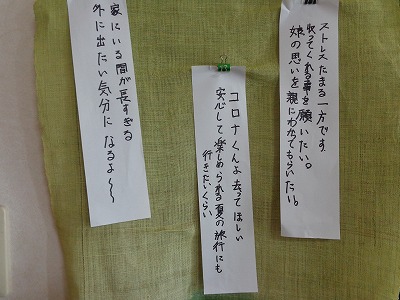 ストレスたまる一方です
収ってくれる事を願いたい。
娘の思いを親にわかってもらいたい。
コロナくんよ去ってほしい
安心して楽しめられる夏の旅行にも
行きたいくらい
家にいる間が長すぎる
外に出たい気分になるよ〜〜